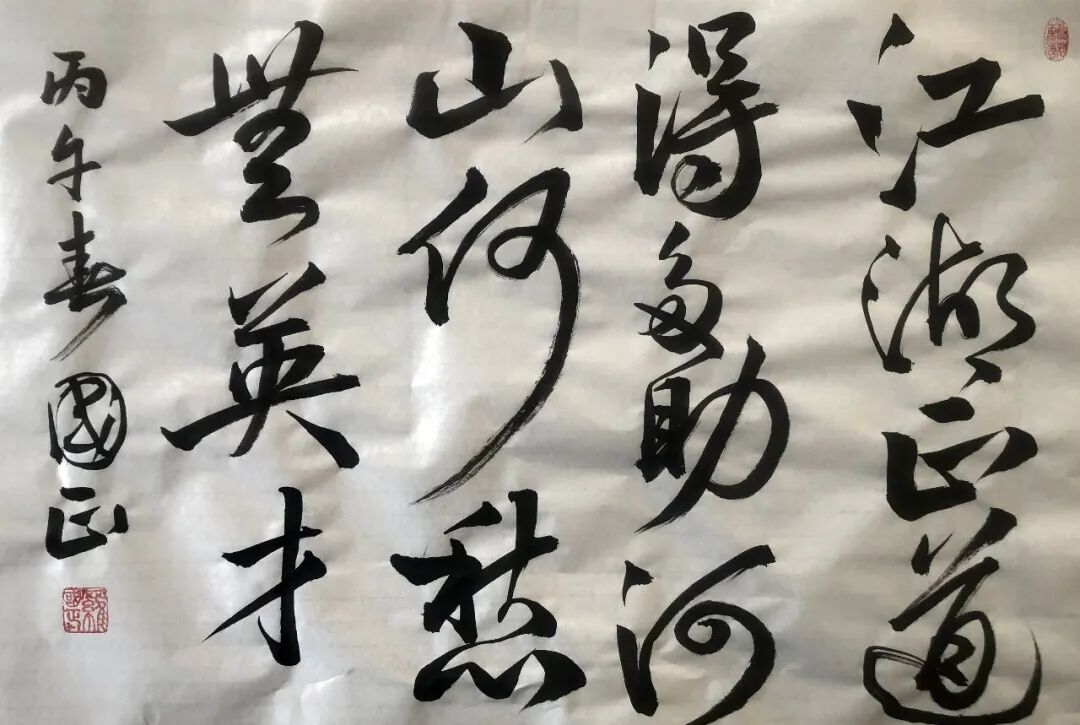 江湖正道
得多助河
山何愁
無英才
丙午春國正